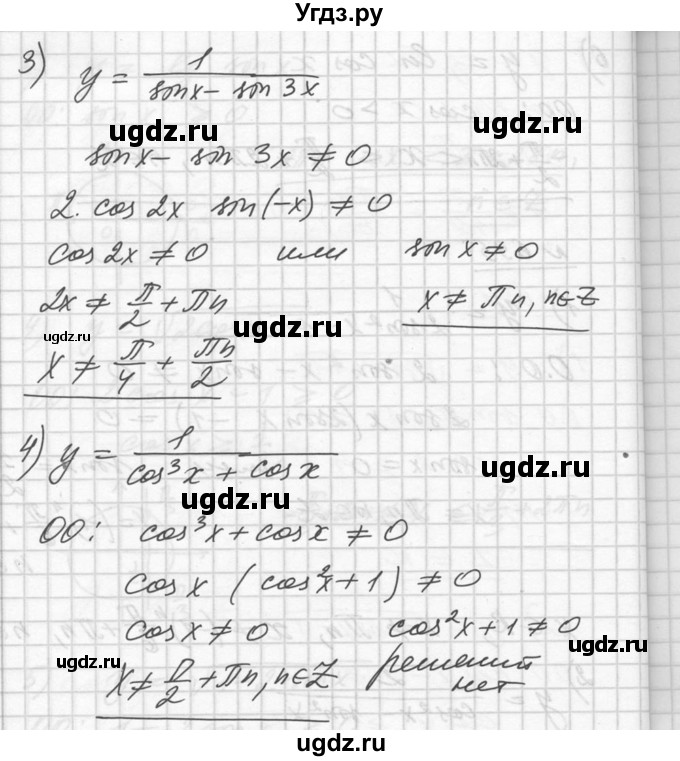 Угдз.ру
3) y = 1/(sin x − sin 3x)
ugdz.ru ugdz.ru
sin x − sin 3x ≠ 0
2. cos 2x sin(−x) ≠ 0
ugdz.ru
cos 2x ≠ 0 или sin x ≠ 0
2x ≠ π/2 + πn x ≠ πn, n∈Z
ugdz.ru ugdz.ru ugdz.ru
x ≠ π/4 + πn/2
4) y = 1/(cos³x + cos x)
ugdz.ru ugdz.ru
ОО: cos³x + cos x ≠ 0
cos x (cos²x + 1) ≠ 0
ugdz.ru
cos x ≠ 0 cos²x + 1 ≠ 0
ugdz.ru ugdz.ru
x ≠ π/2 + πn, n∈Z решений нет
ugdz.ru
ugdz.ru